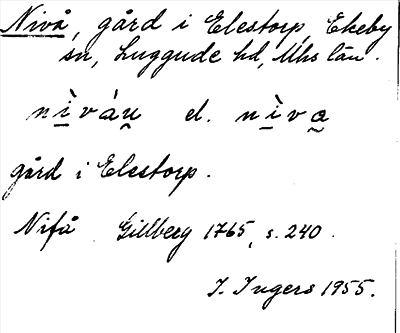 Nivå, gård i Elestorp, Ekeby
sn, Luggude hd, Mhs län.
nìváu̯ el. nìvą
gård i Elestorp.
Nifå Gillberg 1765, s. 240.
I. Ingers 1955.